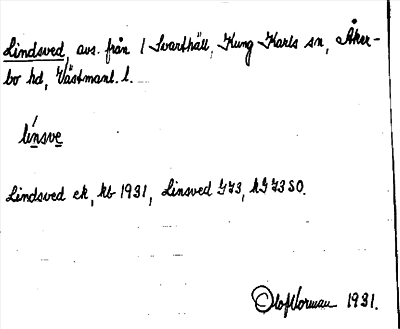 Lindsved, avs. från 1 Svarthäll, Kung Karls sn, Åker-
bo hd, Västmanl. l.
línsve
Lindsved ek, kb 1931, Linsved GJ3, hG J3 SO.
Olof Norman 1931.